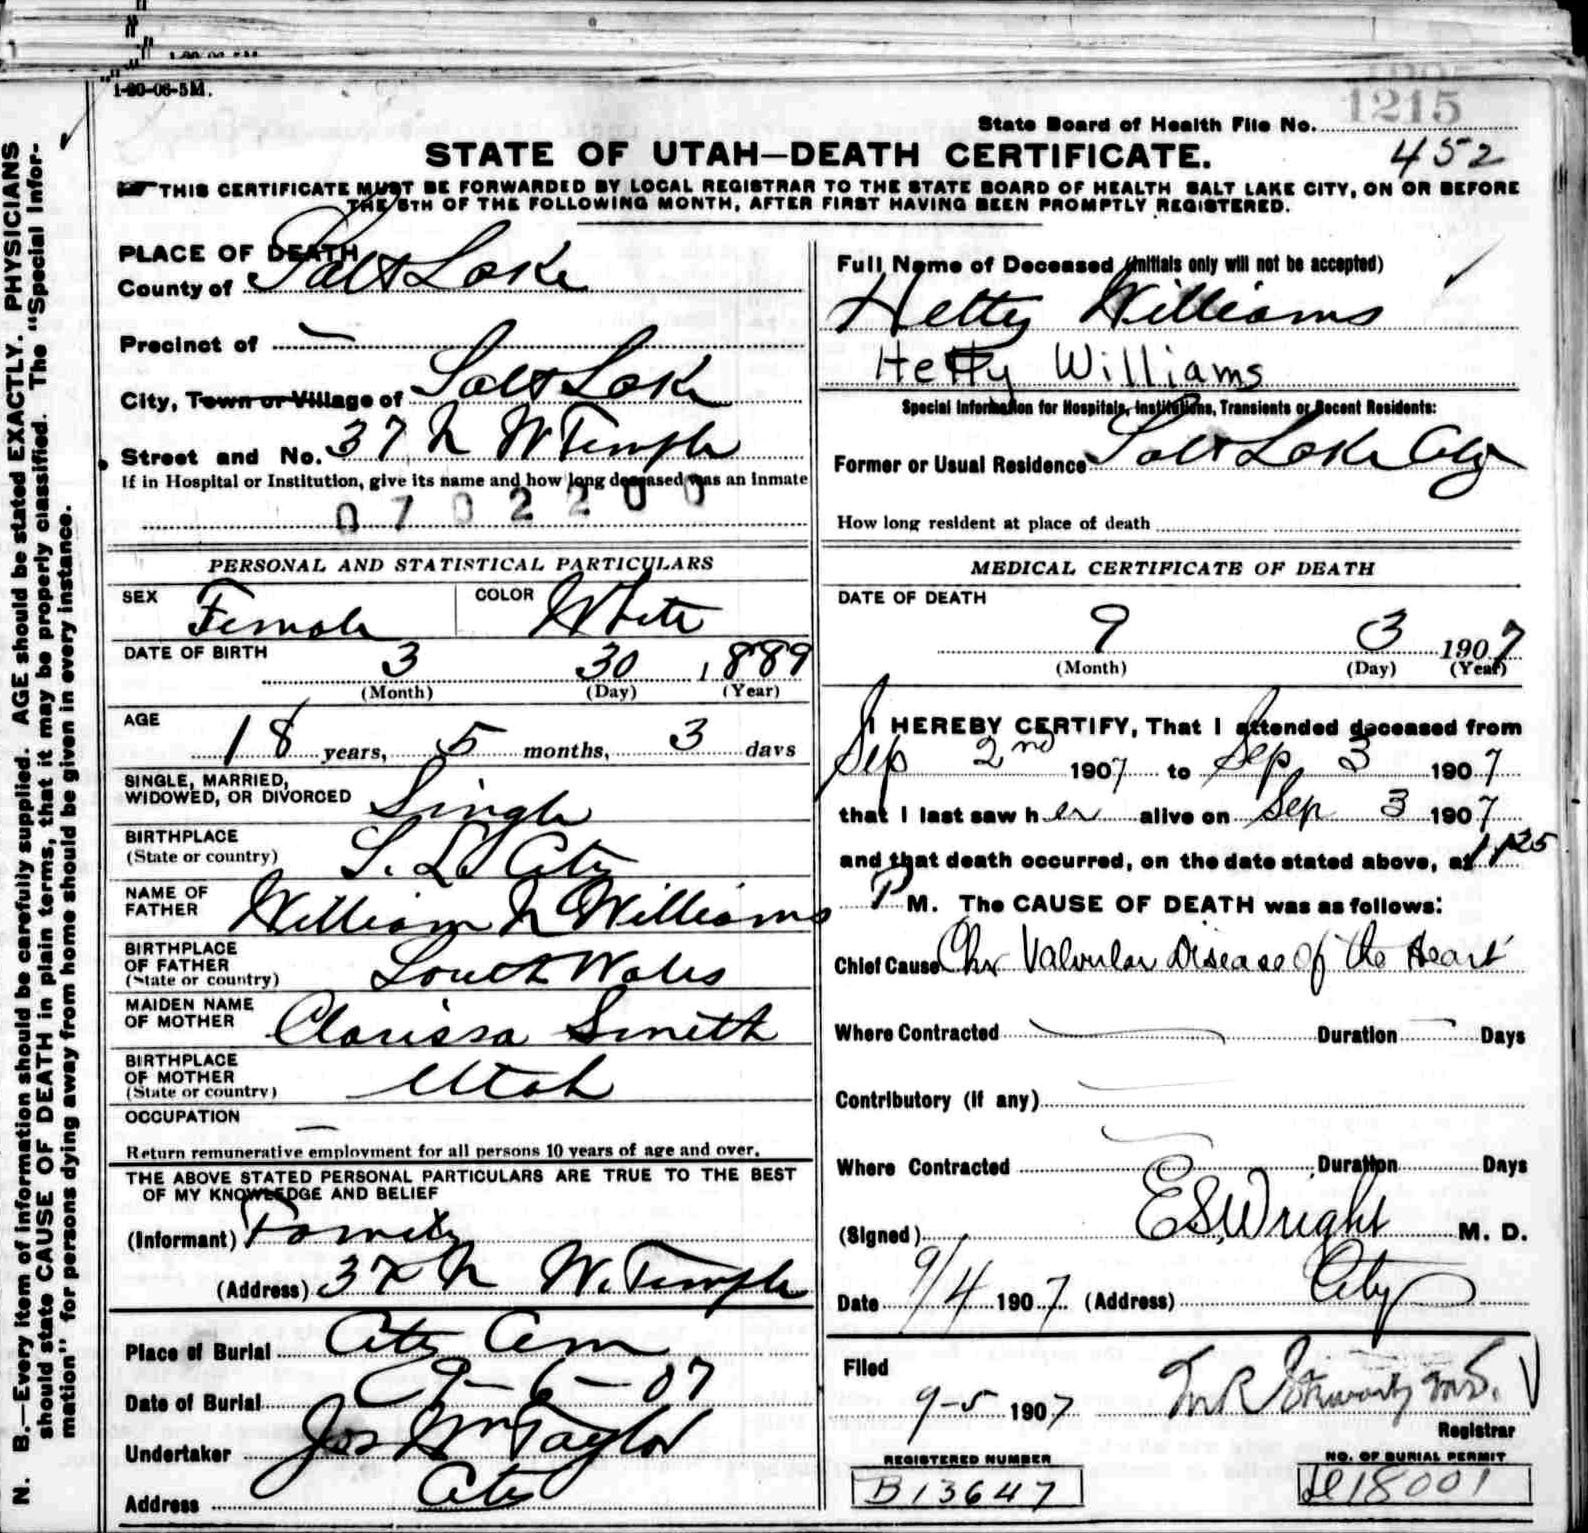 1-20-06-5M.
1215
State Board of Health File No.
452
STATE OF UTAH—DEATH CERTIFICATE.
THIS CERTIFICATE MUST BE FORWARDED BY LOCAL REGISTRAR TO THE STATE BOARD OF HEALTH SALT LAKE CITY, ON OR BEFORE
THE 5TH OF THE FOLLOWING MONTH, AFTER FIRST HAVING BEEN PROMPTLY REGISTERED.
N. B.—Every item of information should be carefully supplied. AGE should be stated EXACTLY. PHYSICIANS
should state CAUSE OF DEATH in plain terms, that it may be properly classified. The "Special Infor-
mation" for persons dying away from home should be given in every instance.
PLACE OF DEATH
County of Salt Lake
Precinct of —
City, Town or Village of Salt Lake
Street and No. 37 N W Temple
If in Hospital or Institution, give its name and how long deceased was an inmate
0702200
PERSONAL AND STATISTICAL PARTICULARS
SEX Female COLOR White
DATE OF BIRTH 3 30 1889
(Month) (Day) (Year)
AGE 18 years, 5 months, 3 days
SINGLE, MARRIED,
WIDOWED, OR DIVORCED Single
BIRTHPLACE
(State or country) S. L. City
NAME OF
FATHER William N Williams
BIRTHPLACE
OF FATHER
(State or country) South Wales
MAIDEN NAME
OF MOTHER Clarissa Smith
BIRTHPLACE
OF MOTHER
(State or country) Utah
OCCUPATION —
Return remunerative employment for all persons 10 years of age and over.
THE ABOVE STATED PERSONAL PARTICULARS ARE TRUE TO THE BEST
OF MY KNOWLEDGE AND BELIEF
(Informant) Family
(Address) 37 N W. Temple
Place of Burial City Cem
Date of Burial 9-6-07
Undertaker Jos Wm Taylor
Address City
Full Name of Deceased (Initials only will not be accepted)
Hetty Williams
Hetty Williams
Special Information for Hospitals, Institutions, Transients or Recent Residents:
Former or Usual Residence Salt Lake City
How long resident at place of death
MEDICAL CERTIFICATE OF DEATH
DATE OF DEATH
9 3 1907
(Month) (Day) (Year)
I HEREBY CERTIFY, That I attended deceased from
Sep 2nd 1907 to Sep 3 1907
that I last saw her alive on Sep 3 1907
and that death occurred, on the date stated above, at
P M. The CAUSE OF DEATH was as follows:
Chief Cause Chr Valvular Disease of the Heart
Where Contracted — Duration — Days
Contributory (if any)
Where Contracted Duration Days
(Signed) E S Wright M. D.
Date 9/4 1907 (Address) City
Filed
9-5 1907
Registrar
REGISTERED NUMBER
B13647
NO. OF BURIAL PERMIT
18001